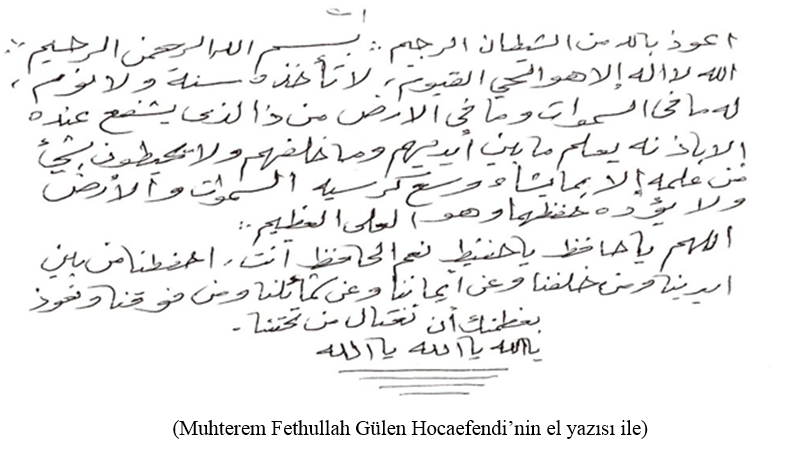 اعوذ بالله من الشيطان الرجيم ∴ بسم الله الرحمن الرحيم ∴
الله لا اله إلا هو الحي القيوم، لا تأخذه سنة ولا نوم،
له ما فى السموات وما في الارض من ذا لذى يشفع عنده
إلا باذنه يعلم ما بين أيديهم وما خلفهم ولا يحيطون بشئ
من علمه إلا بما يشاء وسع كرسيه السموات والأرض
ولا يؤده حفظهما وهو العلى العظيم ∴
اللهم يا حافظ يا حفيظ نعم الحافظ أنت، احفظنا من بين
ايدينا ومن خلفنا وعن أيماننا وعن شمائلنا ومن فوقنا ونعوذ
بعظمتك أن نغتال من تحتنا۔
يا الله يا الله يا الله
(Muhterem Fethullah Gülen Hocaefendi’nin el yazısı ile)